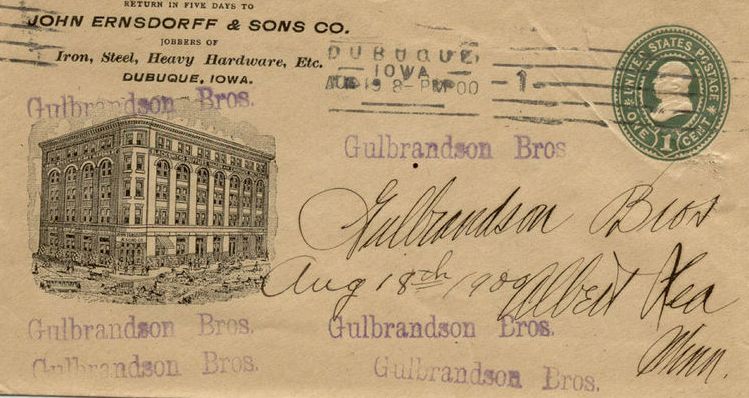 RETURN IN FIVE DAYS TO
JOHN ERNSDORFF & SONS CO.
JOBBERS OF
Iron, Steel, Heavy Hardware, Etc.
DUBUQUE, IOWA.
Gulbrandson Bros.
DUBUQUE,
IOWA
AUG 19 8-PM 00
1
UNITED STATES POSTAGE
ONE 1 CENT
Gulbrandson Bros
Gulbrandson Bros
Aug 18th 1900
Albert Lea
Minn.
Gulbrandson Bros.
Gulbrandson Bros.
Gulbrandson Bros.
Gulbrandson Bros.